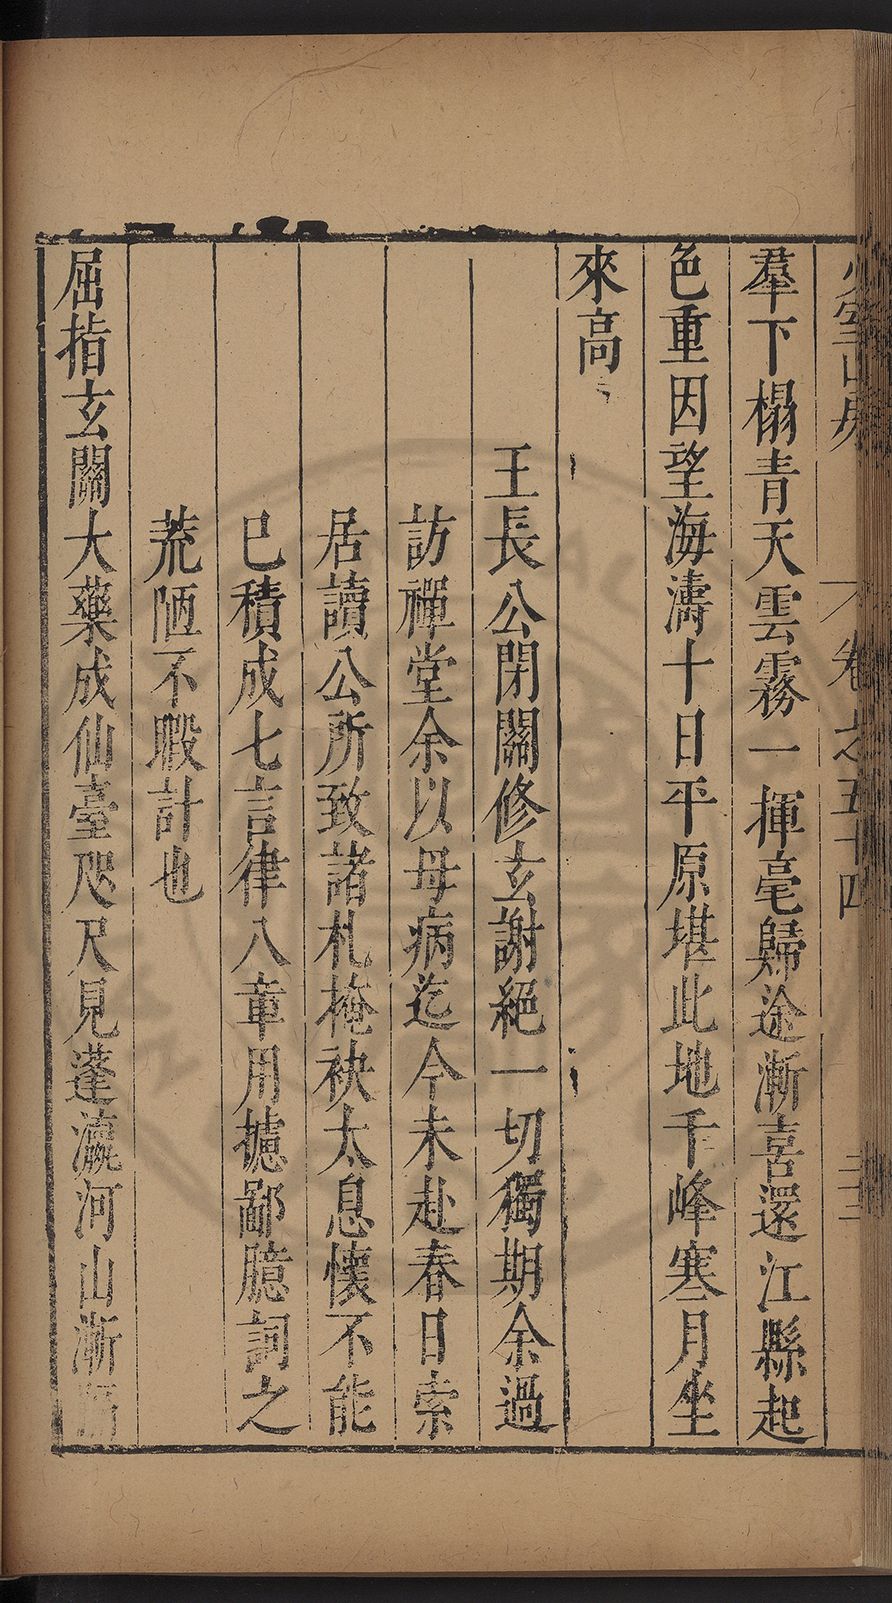 少室山房
卷之五十四
羣下榻青天雲霧一揮毫歸途漸喜還江縣起
色重因望海濤十日平原堪此地千峰寒月坐
來高
王長公閉關修玄謝絕一切獨期余過
訪禪堂余以母病迄今未赴春日索
居讀公所致諸札掩袂太息懷不能
已積成七言律八章用攄鄙臆詞之
荒陋不暇計也
屈指玄關大藥成仙臺咫尺見蓬瀛河山漸